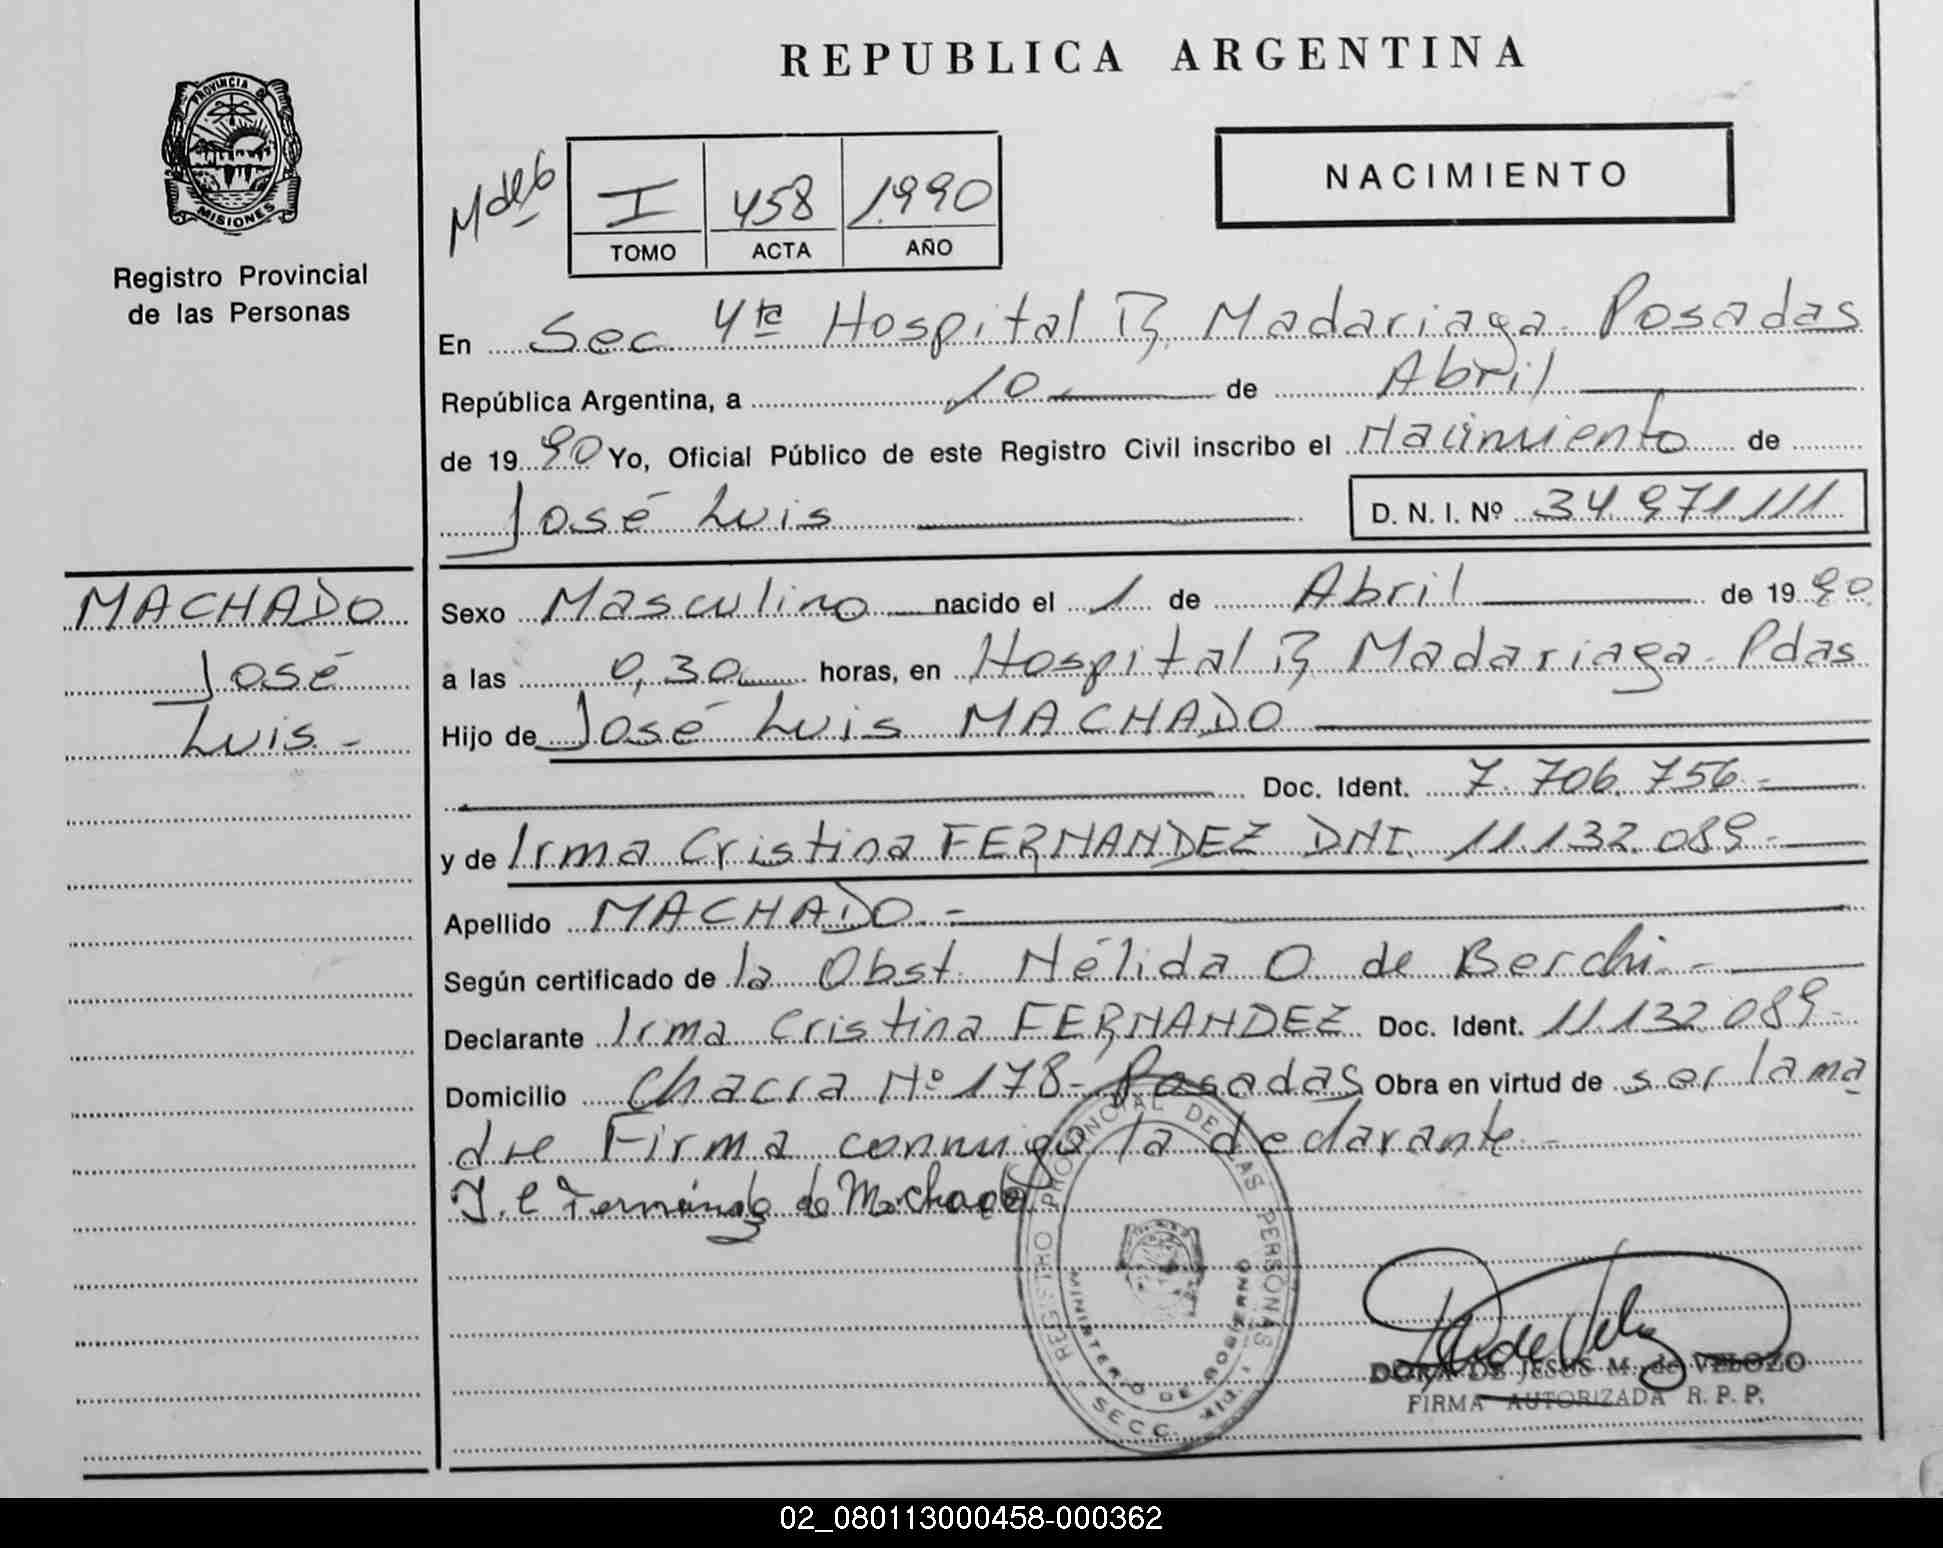 REPUBLICA ARGENTINA
PROVINCIA DE
MISIONES
Registro Provincial
de las Personas
I 458 1990
TOMO ACTA AÑO
NACIMIENTO
En Sec 4ta Hospital R. Madariaga Posadas
República Argentina, a 10 de Abril
de 1990 Yo, Oficial Público de este Registro Civil inscribo el Nacimiento de
José Luis D. N. I. Nº 34.971.111
MACHADO
José
Luis -
Sexo Masculino nacido el 1 de Abril de 1990
a las 0,30 horas, en Hospital R. Madariaga - Pdas
Hijo de José Luis MACHADO
Doc. Ident. 7.706.756.-
y de Irma Cristina FERNANDEZ DNI. 11.132.089.-
Apellido MACHADO.-
Según certificado de la Obst. Nélida O. de Berchi.-
Declarante Irma Cristina FERNANDEZ Doc. Ident. 11.132.089.-
Domicilio Chacra Nº 178- Posadas Obra en virtud de ser la ma
dre Firma conmigo la declarante.-
I. C Fernández de Machado
REGISTRO PROVINCIAL DE LAS PERSONAS
MINISTERIO DE GOBIERNO
SECC.
DORA DE JESUS M. de VELOZO
FIRMA AUTORIZADA R. P. P.
02_080113000458-000362